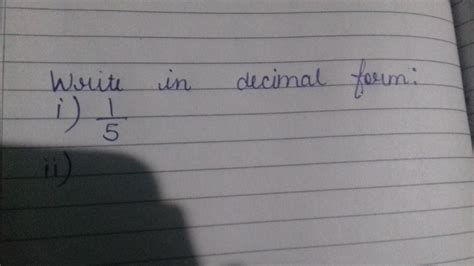 Write in decimal form:
i) 1/5
ii)